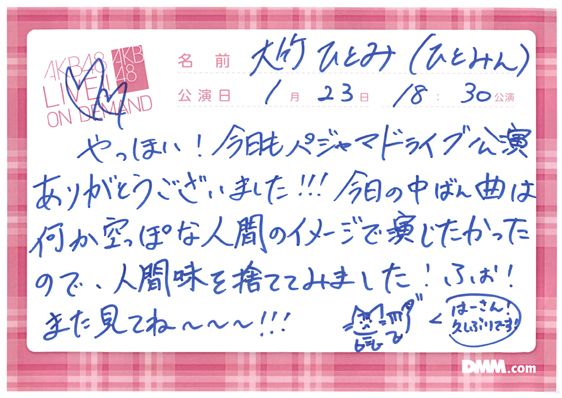 AKB48
LIVE!!
ON DEMAND
AKB
48
名前 大竹ひとみ(ひとみん)
公演日 1月23日 18:30公演
やっほい!今日もパジャマドライブ公演
ありがとうございました!!!今日の中ばん曲は
何か空っぽな人間のイメージで演じたかった
ので、人間味を捨ててみました!ふぉ!
また見てね〜〜〜!!!
はーさん!
久しぶりです!
DMM.com